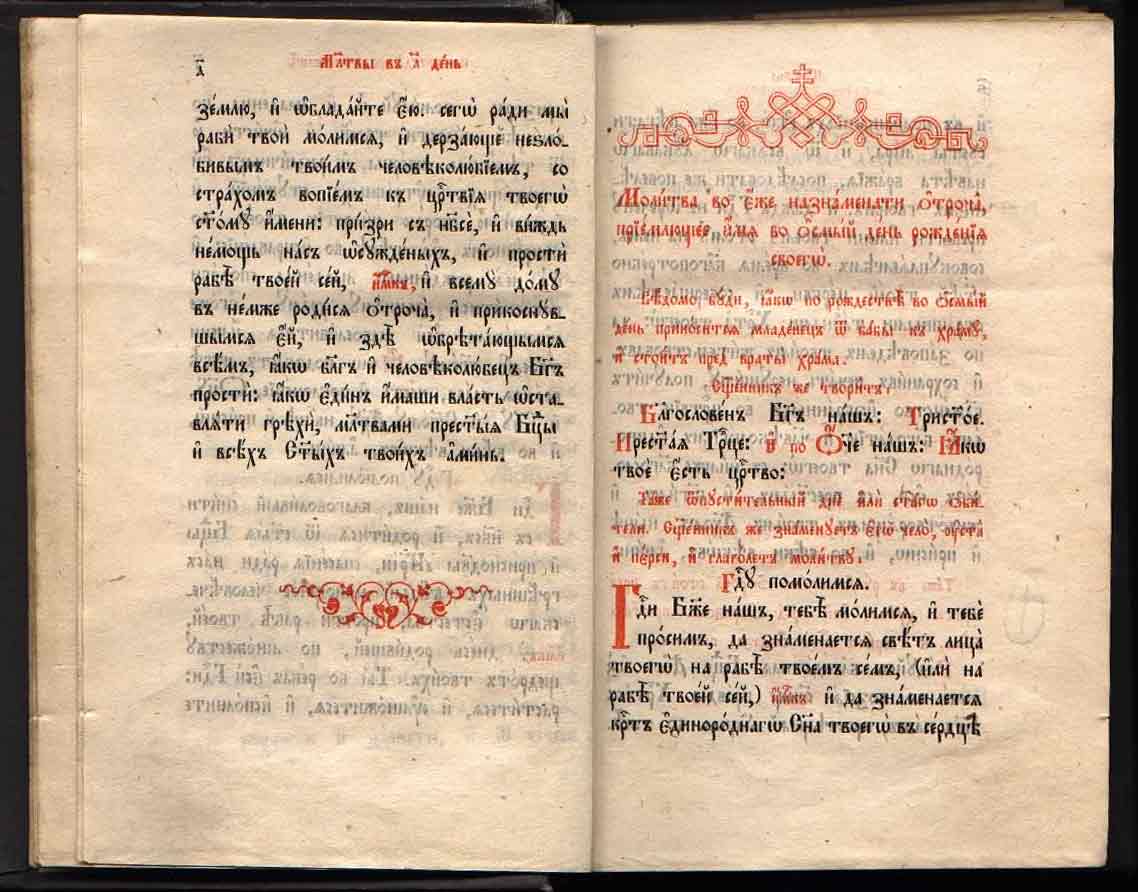 д҃
Мл҃твы въ а҃ де́нь
зе́млю, и҆ ѡ҆блада́йте е҆́ю. сегѡ̀ ра́ди мы̀
раби̑ твоѝ мо́лимсѧ, и҆ дерза́юще неѕло-
бивымъ твои́мъ человѣколю́бїемъ, со
стра́хомъ вопїе́мъ к҄ црⷭ҇твїѧ твоегѡ̀
ст҃о́мꙋ и҆́мени: при́зри съ нб҃сѐ, и҆ ви́ждь
не́мощь на́съ ѡ҆сꙋжде́ныхъ, и҆ простѝ
рабѣ̀ твое́й се́й, и҆́мⷬ҇къ, и҆ всемꙋ̀ до́мꙋ
въ не́мже роди́сѧ ѻ҆троча̀, и҆ прикоснꙋ́в-
шымсѧ е҆́й, и҆ здѣ̀ ѡ҆брѣта́ющымсѧ
всѣ̑мъ, ꙗ҆́кѡ бл҃гъ и҆ человѣколю́бецъ бг҃ъ
простѝ: ꙗ҆́кѡ є҆ди́нъ и҆́маши вла́сть ѡ҆ста-
влѧ́ти грѣхѝ, мл҃твами прест҃ы́ѧ бцⷣы
и҆ всѣ́хъ ст҃ы́хъ твои́хъ а҆ми́нь.
Моли́тва во є҆́же назна́менати ѻ҆троча̀,
прїе́млющее и҆́мѧ во ѻ҆смы́й де́нь рожде́нїѧ
своегѡ̀.
Вѣ́домо бꙋ́ди, ꙗ҆́кѡ по рождествѣ̀ во ѻ҆смы́й
де́нь прино́ситсѧ младе́нецъ ѿ ба́бы къ хра́мꙋ,
и҆ стои́тъ пред̾ враты̀ хра́ма.
Сщ҃е́нникъ же твори́тъ,
Благослове́нъ бг҃ъ на́шъ: Трист҃о́е.
Прест҃а́ѧ трⷪ҇це: и҆ по Ѻ҆́че на́шъ: Ꙗ҆́кѡ
твоѐ є҆́сть црⷭ҇тво:
Та́же ѿпꙋсти́тельный днѐ и҆лѝ ст҃а́гѡ ѻ҆би́-
тели. Сщ҃е́нникъ же зна́менꙋетъ є҆гѡ̀ чело̀, ᲂу҆ста̀
и҆ пе́рси, и҆ глаго́летъ моли́твꙋ.
Гдⷭ҇ꙋ помо́лимсѧ.
Гдⷭ҇и бж҃е на́шъ, тебѣ̀ мо́лимсѧ, и҆ тебѐ
про́симъ, да зна́менаетсѧ свѣ́тъ лица̀
твоегѡ̀ на рабѣ̀ твое́мъ се́мъ, (и҆лѝ на
рабѣ̀ твое́й се́й,) и҆́мⷬ҇къ и҆ да зна́менаетсѧ
крⷭ҇тъ є҆диноро́днагѡ сн҃а твоегѡ̀ въ се́рдцѣ